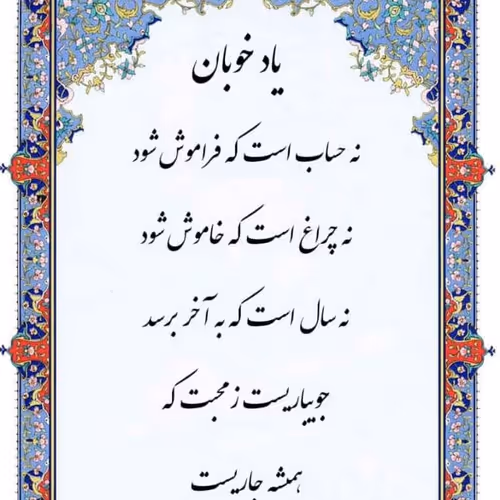 یاد خوبان
نه حساب است که فراموش شود
نه چراغ است که خاموش شود
نه سال است که به آخر برسد
جویباریست ز محبت که
همیشه جاریست